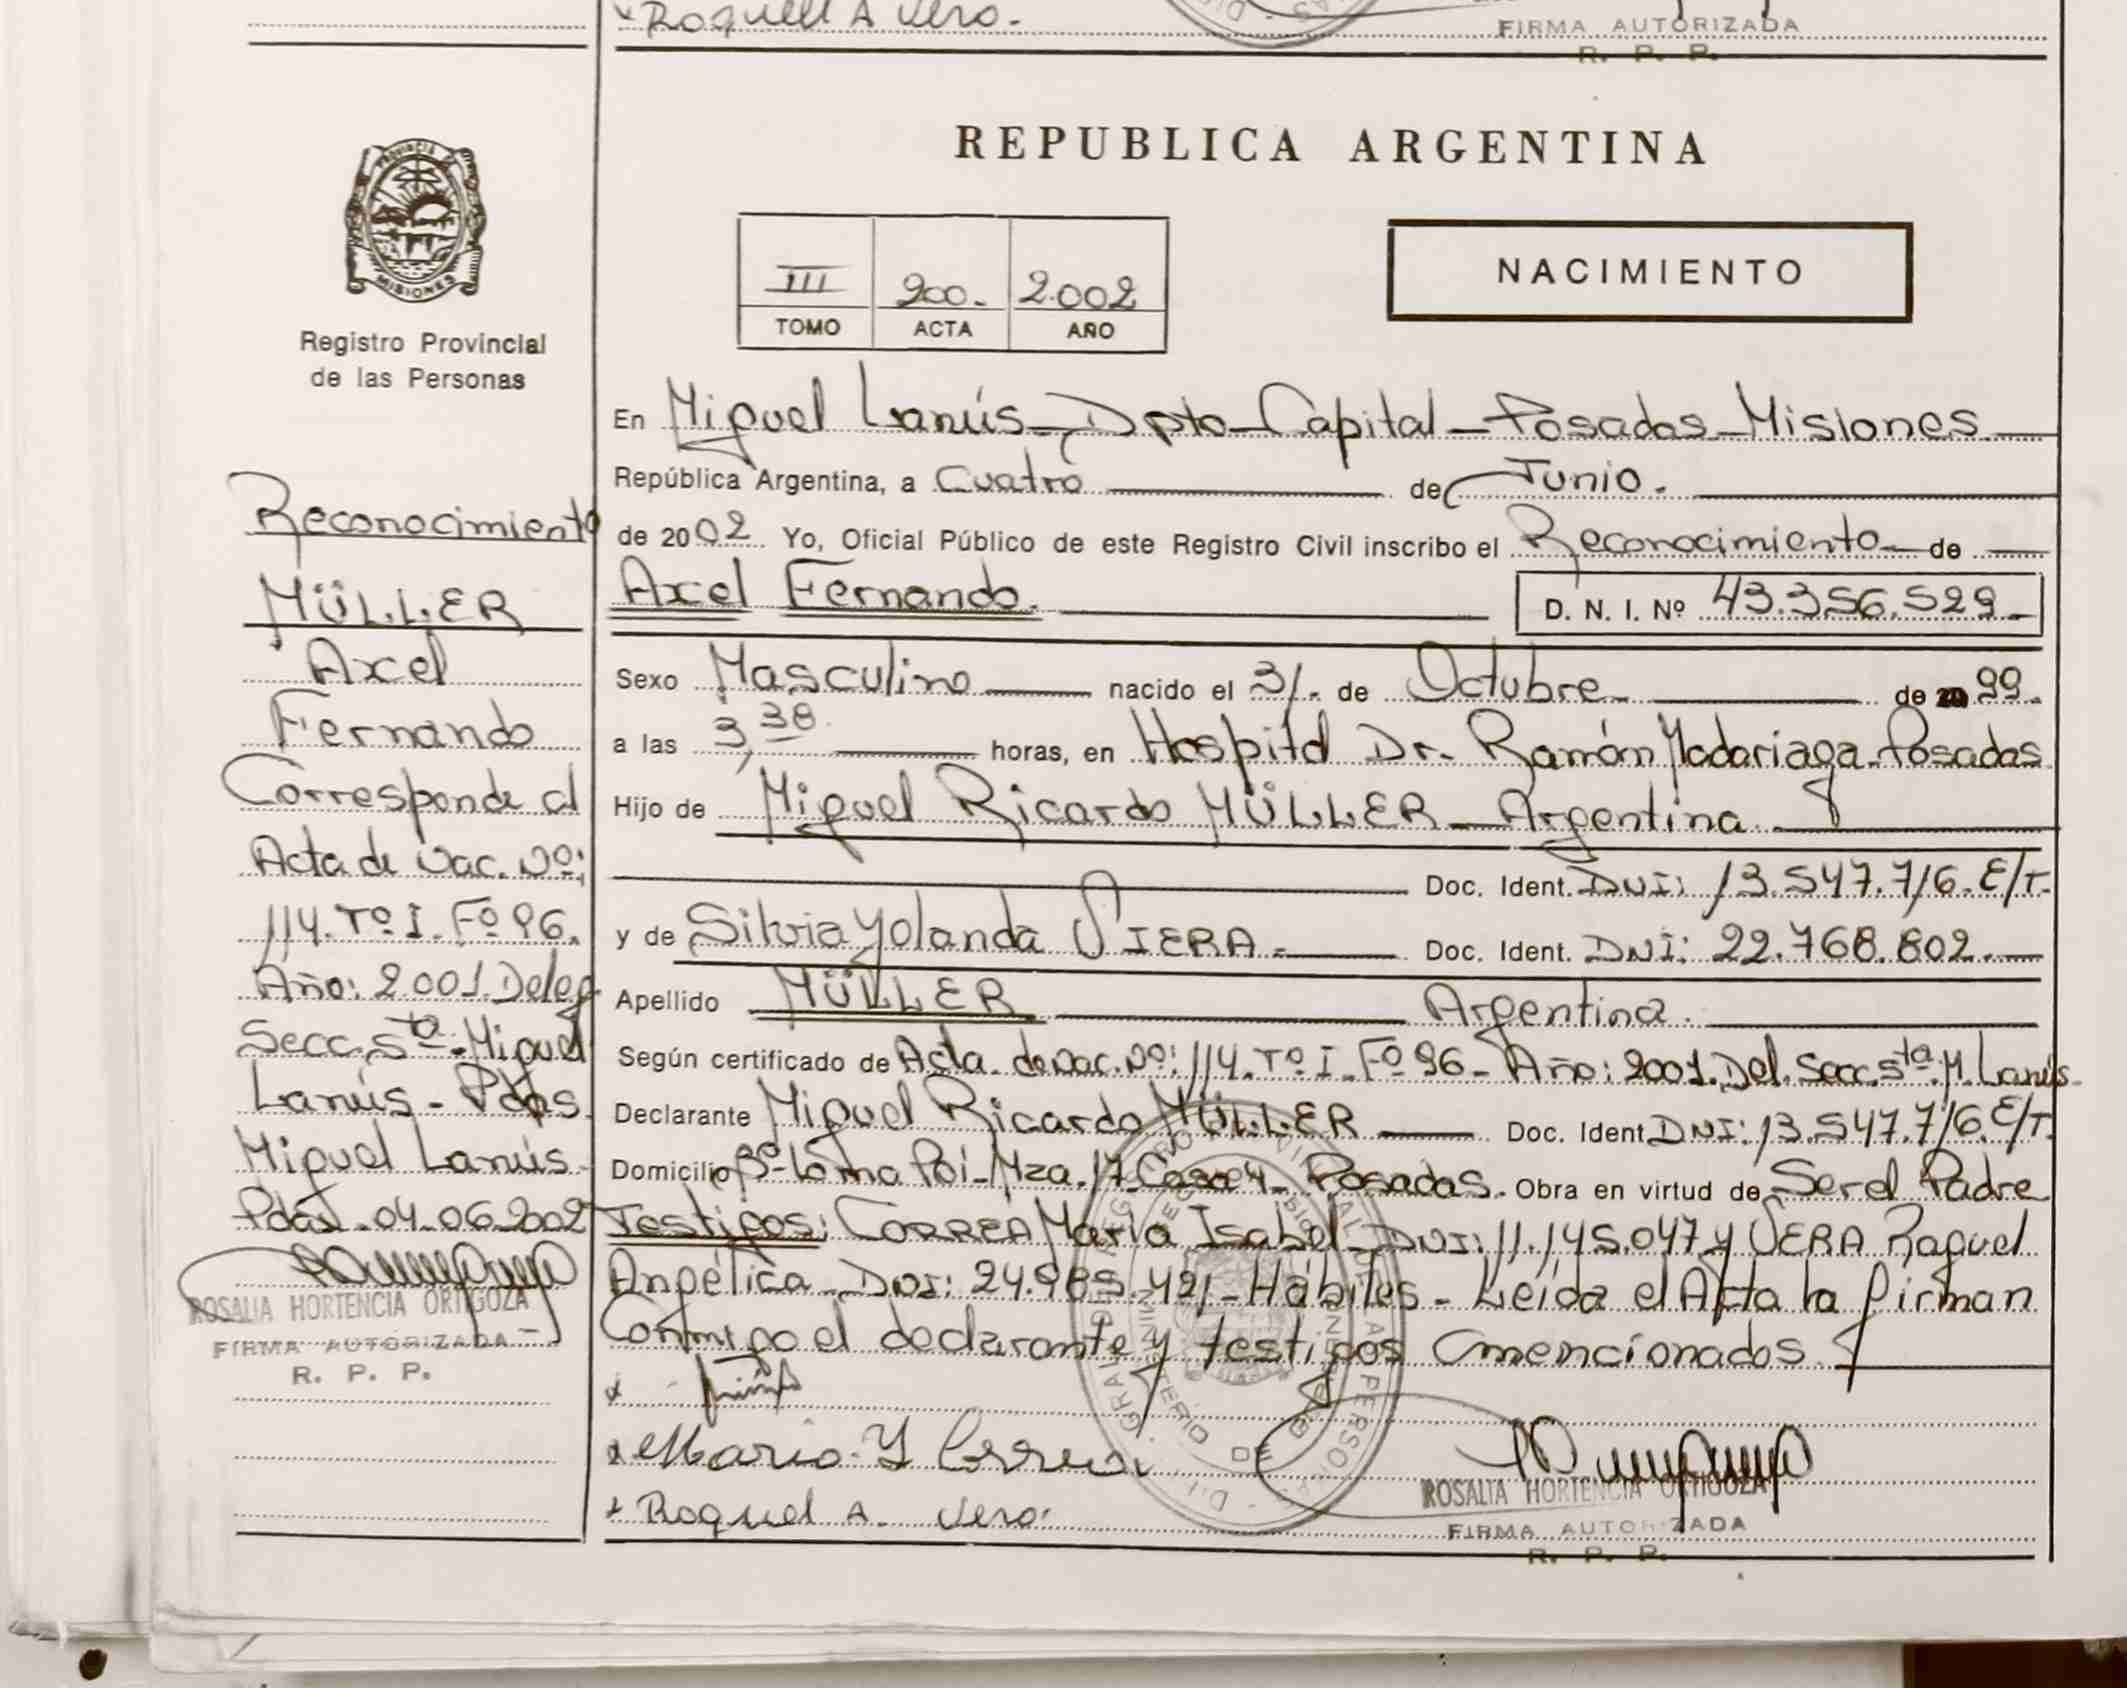 Raquel A Vera.
FIRMA AUTORIZADA
R. P. P.
PROVINCIA DE
MISIONES
Registro Provincial
de las Personas
Reconocimiento
MÜLLER
Axel
Fernando
Corresponde al
Acta de Nac. Nº:
114. Tº I. Fº 96.
Año: 2.001. Deleg
Secc. 5ta. Miguel
Lanús - Pdas.
Miguel Lanús.
Pdas. 04.06.2002
ROSALIA HORTENCIA ORTIGOZA
FIRMA AUTORIZADA
R. P. P.
REPUBLICA ARGENTINA
III 200. 2.002
TOMO ACTA AÑO
NACIMIENTO
En Miguel Lanús - Dpto Capital - Posadas Misiones
República Argentina, a Cuatro de Junio.
de 2002 Yo, Oficial Público de este Registro Civil inscribo el Reconocimiento de
Axel Fernando. D. N. I. Nº 43.356.529.-
Sexo Masculino nacido el 31. de Octubre de 99.
a las 3,38 horas, en Hospital Dr. Ramón Madariaga - Posadas
Hijo de Miguel Ricardo MÜLLER - Argentina
Doc. Ident. DNI: 13.547.716. E/T.
y de Silvia Yolanda SIERA. Doc. Ident. DNI: 22.768.802.
Apellido MÜLLER Argentina.
Según certificado de Acta de Nac. Nº: 114. Tº I. Fº 96 - Año: 2001. Del. Secc. 5ta. M. Lanús.
Declarante Miguel Ricardo MÜLLER Doc. Ident DNI: 13.547.716. E/T.
Domicilio Bº Loma Poi - Mza. 17 Casa 4 - Posadas. Obra en virtud de Ser el Padre
Testigos: CORREA María Isabel - DNI: 11.145.047 y VERA Raquel
Angélica - DNI: 24.985.421 - Hábiles - Leída el Acta la firman
Conmigo el declarante y testigos mencionados.
x
x Maria Y Correa
x Raquel A. Vera.
ROSALIA HORTENCIA ORTIGOZA
FIRMA AUTORIZADA
R. P. P.